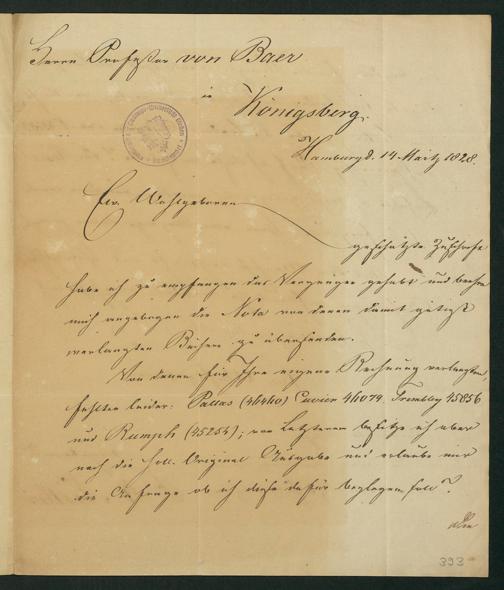 Herrn Professor von Baer
in
Königsberg.
Hamburg d. 14 März 1828.
Ew. Wohlgeboren
geschätzte Zuschrift
habe ich zu empfangen das Vergnügen gehabt und beehre
mich angebogen die Nota von denen damit gütigst
verlangten Büchern zu übersenden.
Von denen für Ihre eigene Rechnung verlangten,
fehlten leider: Pallas (44460) Cuvier 46079. Trembley 45856
und Rumph (45254); von Letzterem besitze ich aber
noch die holl. Original Ausgabe und erlaube mir
die Anfrage ob ich diese dafür beylegen soll?
393